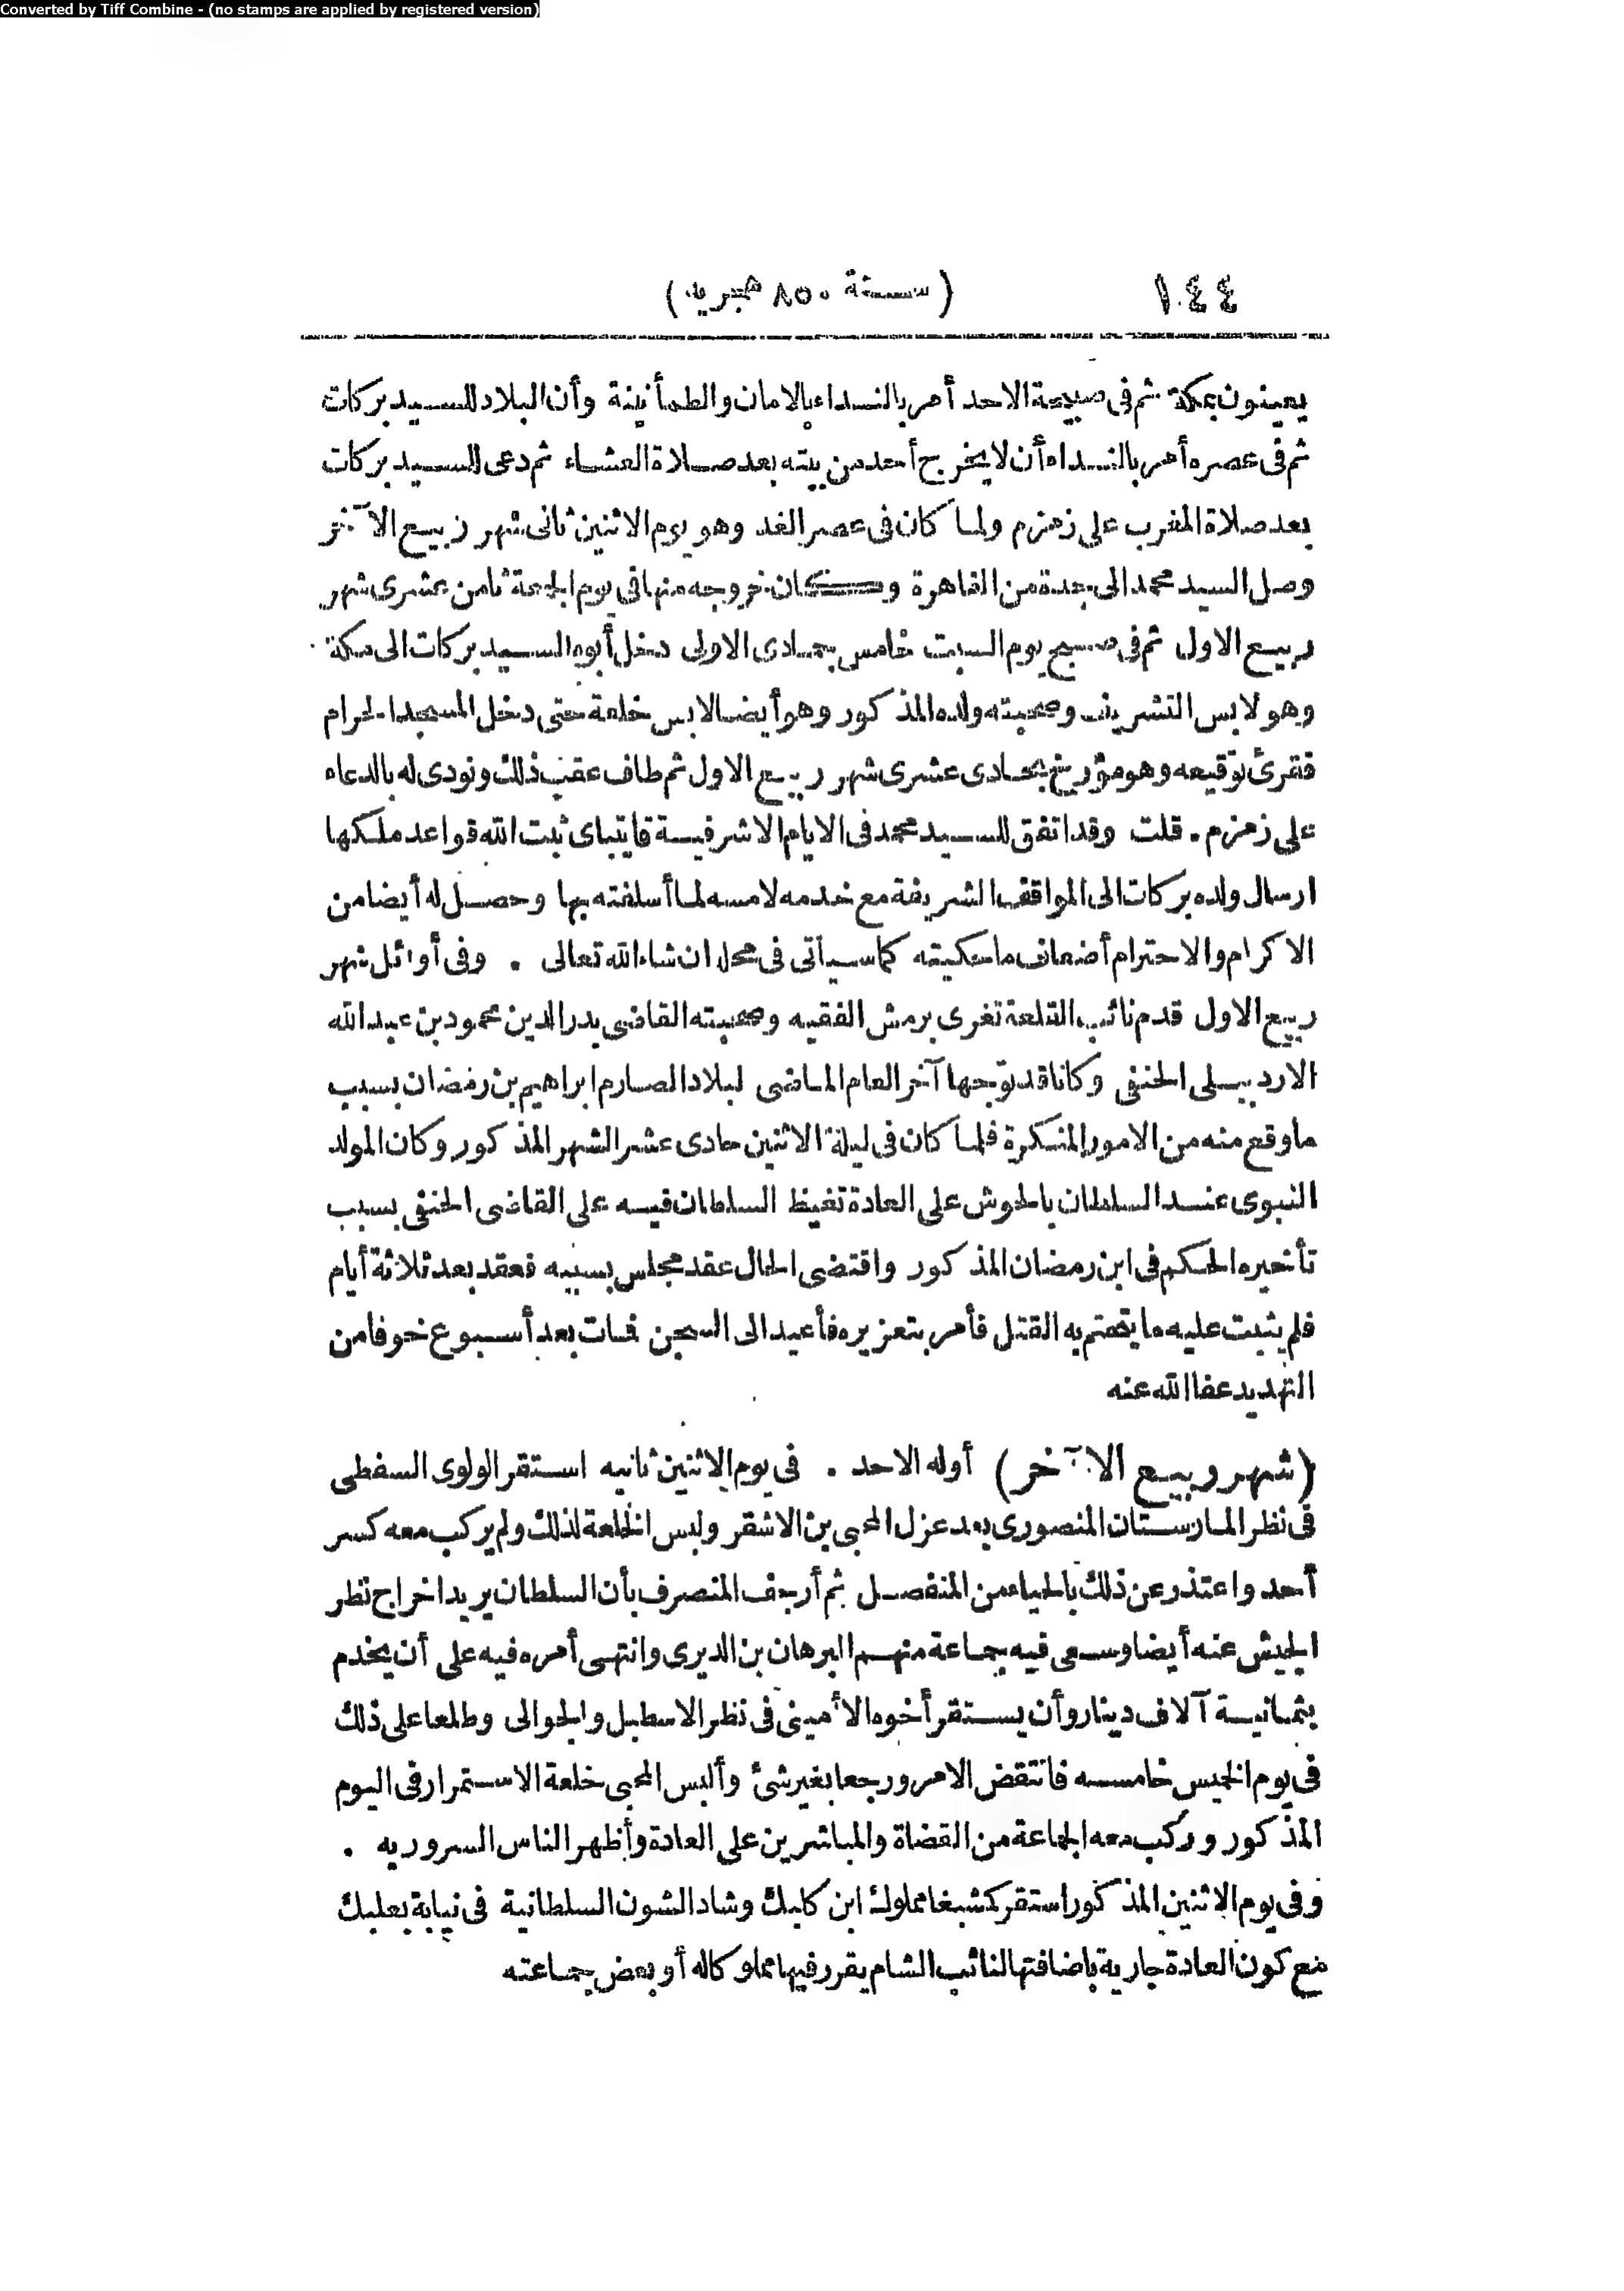 Converted by Tiff Combine - (no stamps are applied by registered version)
١٤٤
(سنة ٨٥٠ هجريه)
يعينون بمكة ثم فى صبيحة الاحد أمر بالنداء بالامان والطمأنينة وأن البلاد للسيد بركات
ثم فى عصره أمر بالنداء أن لا يخرج أحد من بيته بعد صلاة العشاء ثم دعى للسيد بركات
بعد صلاة المغرب على زمزم ولما كان فى عصر الغد وهو يوم الاثنين ثانى شهر ربيع الآخر
وصل السيد محمد الى جدة من القاهرة وكان خروجه منها فى يوم الجمعة ثامن عشرى شهر
ربيع الاول ثم فى صبح يوم السبت خامس جمادى الاولى دخل أبوه السيد بركات الى مكة
وهو لابس التشريف وصحبته ولده المذكور وهو أيضا لابس خلعة حتى دخل المسجد الحرام
فقرئ توقيعه وهو مؤرخ بحادى عشرى شهر ربيع الاول ثم طاف عقب ذلك ونودى له بالدعاء
على زمزم. قلت وقد اتفق للسيد محمد فى الايام الاشرفية قايتباى ثبت الله قواعد ملكها
ارسال ولده بركات الى المواقف الشريفة مع خدمه لامسه لما أسلفته بها وحصل له أيضا من
الاكرام والاحترام أضعاف ما حكيته كما سيأتى فى محله ان شاء الله تعالى . وفى أوائل شهر
ربيع الاول قدم نائب القلعة تغرى برمش الفقيه وصحبته القاضى بدر الدين محمود بن عبد الله
الاردبيلى الحنفى وكانا قد توجها آخر العام الماضى لبلاد الصارم ابراهيم بن رمضان بسبب
ما وقع منه من الامور المنكرة فلما كان فى ليلة الاثنين حادى عشر الشهر المذكور وكان المولد
النبوى عند السلطان بالحوش على العادة تغيظ السلطان فيه على القاضى الحنفى بسبب
تأخيره الحكم فى ابن رمضان المذكور واقتضى الحال عقد مجلس بسببه فعقد بعد ثلاثة أيام
فلم يثبت عليه ما يتحتم به القتل فأمر بتعزيره فأعيد الى السجن فمات بعد أسبوع خوفا من
التهديد عفا الله عنه
(شهر ربيع الآخر) أوله الاحد . فى يوم الاثنين ثانيه استقر الولوى السفطى
فى نظر المارستان المنصورى بعد عزل المحبى بن الاشقر ولبس الخلعة لذلك ولم يركب معه كسر
أحد واعتذر عن ذلك بالحياء من المنفصل ثم أرجف المنصرف بأن السلطان يريد اخراج نظر
الجيش عنه أيضا وسعى فيه جماعة منهم البرهان بن الديرى وانتهى أمره فيه على أن يخدم
بثمانية آلاف دينار وأن يستقر أخوه الأمينى فى نظر الاسطبل والجوالى وطلعا على ذلك
فى يوم الخميس خامسه فانتقض الامر ورجعا بغير شئ وألبس المحبى خلعة الاستمرار فى اليوم
المذكور وركب معه الجماعة من القضاة والمباشرين على العادة وأظهر الناس السرور به .
وفى يوم الاثنين المذكور استقر كمشبغا مملوك ابن كلبك وشاد الشون السلطانية فى نيابة بعلبك
مع كون العادة جارية باضافتها لنائب الشام يقرر فيها مملوكا له أو بعض جماعته